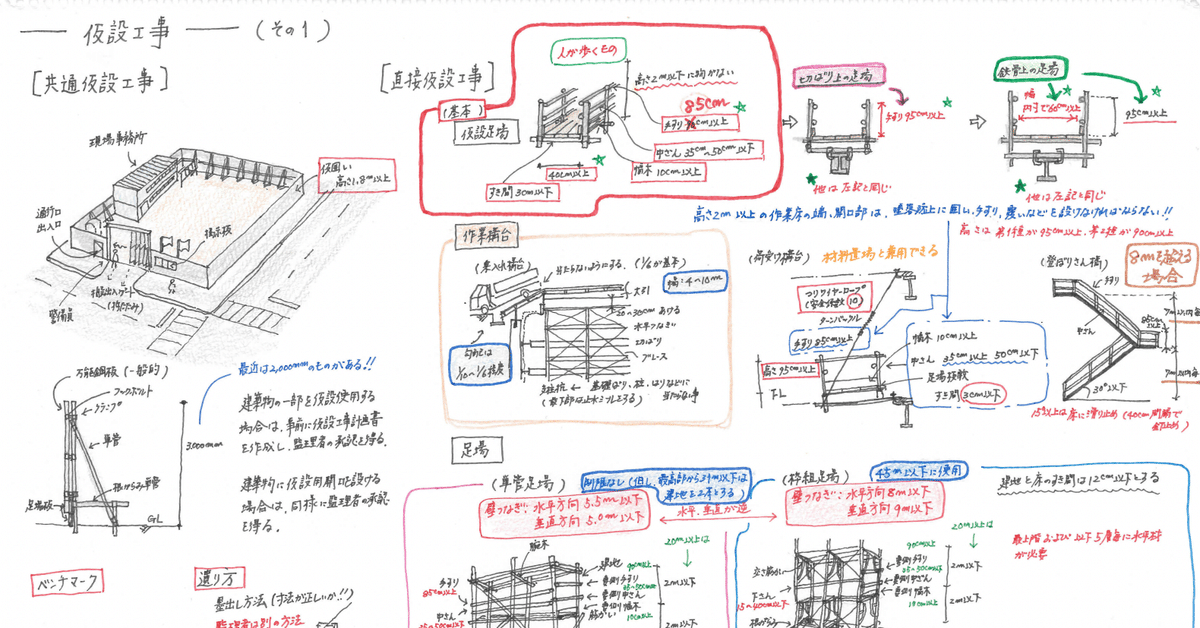 仮設工事 (その1)
[共通仮設工事]
現場事務所
仮囲い
高さ1.8m以上
通行口
出入口
掲示板
搬出入ゲート
警備員
万能鋼板(一般的)
フックボルト
クランプ
単管
根がらみ単管
足場板
GL
3,000mm
最近は2,000mmのものがある!!
建築物の一部を仮設使用する
場合は、事前に仮設工事計画書
を作成し、監理者の承認を得る。
建築物に仮設用開口を設ける
場合は、同様に監理者の承認
を得る。
ベンチマーク
遣り方
墨出し方法(寸法が正しいか!!)
監理者は別の方法
[直接仮設工事]
(基本)
仮設足場
人が歩くもの
高さ2m以下に物がない
85cm
手すり cm以上
中さん35cm~50cm以下
幅木10cm以上
40cm以上
すき間3cm以下
切ばり上の足場
手すり95cm以上
他は左記と同じ
鉄骨上の足場
幅
内寸で60cm以上
95cm以上
他は左記と同じ
高さ2m以上の作業床の端、開口部は、墜落防止に囲い、手すり、覆いなどを設けなければならない!!
高さは第1種が95cm以上、第2種が90cm以上
作業構台
(乗入れ構台)
当たらないようにする。(1/6が基本)
幅:4~10m
大引
20~30cmあける
水平つなぎ
切ばり
ブレース
勾配は
1/10~1/6程度
支持杭
基礎ばり、柱、はりなどに
当たらない事
(荷受け構台)
材料置場と兼用できる
つりワイヤーロープ
(安全係数10)
ターンバックル
手すり85cm以上
高さ95cm以上
FL
幅木10cm以上
中さん35cm以上50cm以下
足場板敷
すき間3cm以下
(登りさん橋)
8mを超える
場合
手すり
中さん
85cm
以上
7m以内毎
7m以内毎
30°以下
15°以上は床に滑り止め(40cm間隔で
釘止め)
足場
(単管足場)
制限なし(但し、最高部から31m以下は
建地を2本とする)
壁つなぎ:水平方向5.5m以下
垂直方向5.0m以下
水平、垂直が逆
(枠組足場)
45m以下に使用
壁つなぎ:水平方向8m以下
垂直方向9m以下
建地と床のすき間は12cm以下とする
20m以上は
20m以上は
最上層および以下5層毎に水平材
が必要
腕木
手すり
85cm以上
中さん
35~50cm以下
建地
90cm以上
妻側手すり
35~50cm以下
妻側中さん
妻側幅木
10cm以上
筋かい
2m以下
2m以下
90cm以上
交さ筋かい
下さん
15~40cm以下
妻側手すり
35~50cm以下
妻側中さん
妻側幅木
10cm以上
2m以下
2m以下